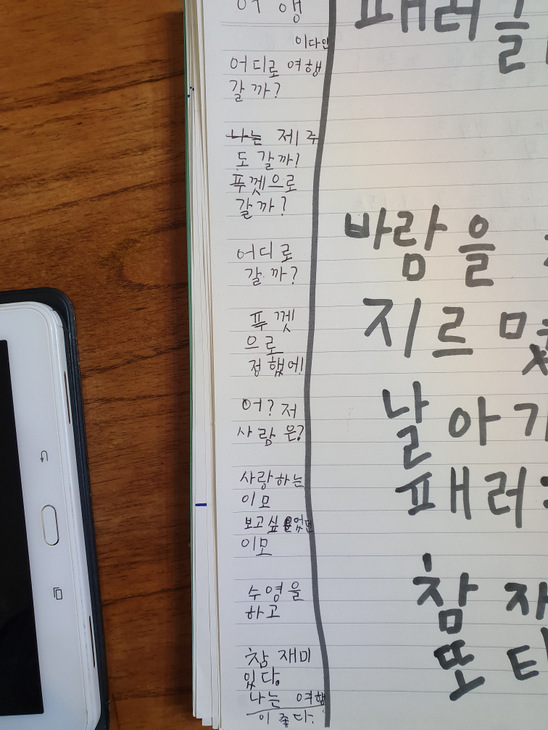 여행
이다인
어디로 여행
갈까?
나는 제주
도 갈까!
푸껫으로
갈까?
어디로
갈까?
푸껫
으로
정했어!
어? 저
사람은?
사랑하는
이모
보고싶
이모
수영을
하고
참 재미
있다.
나는 여행
이 좋다.
패러글
바람을
지르며
날아가
패러
참 재
또 타